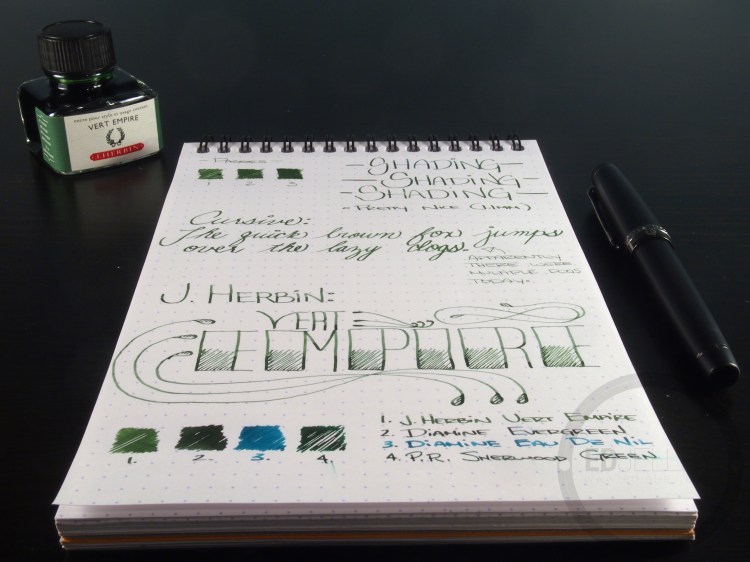 VERT EMPIRE
J.HERBIN
- Passes -
1 2 3
-SHADING-
-SHADING-
-SHADING-
- PRETTY NICE (1.1MM)
Cursive:
The quick brown fox jumps
over the lazy dogs.
APPARENTLY
THERE WERE
MULTIPLE DOGS
TODAY.
J. HERBIN:
VERT
EMPIRE
1. 2. 3. 4.
1. J. HERBIN VERT EMPIRE
2. DIAMINE EVERGREEN
3. DIAMINE EAU DE NIL
4. P.R. SHERWOOD GREEN